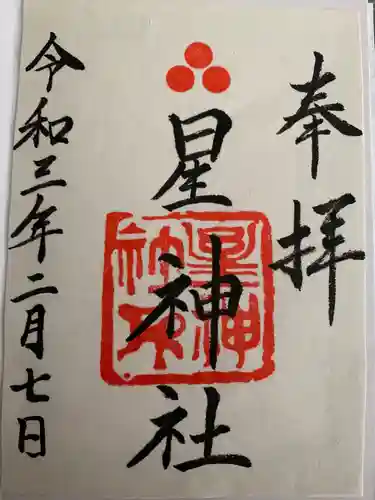 奉拝
星神社
星神社
令和三年二月七日